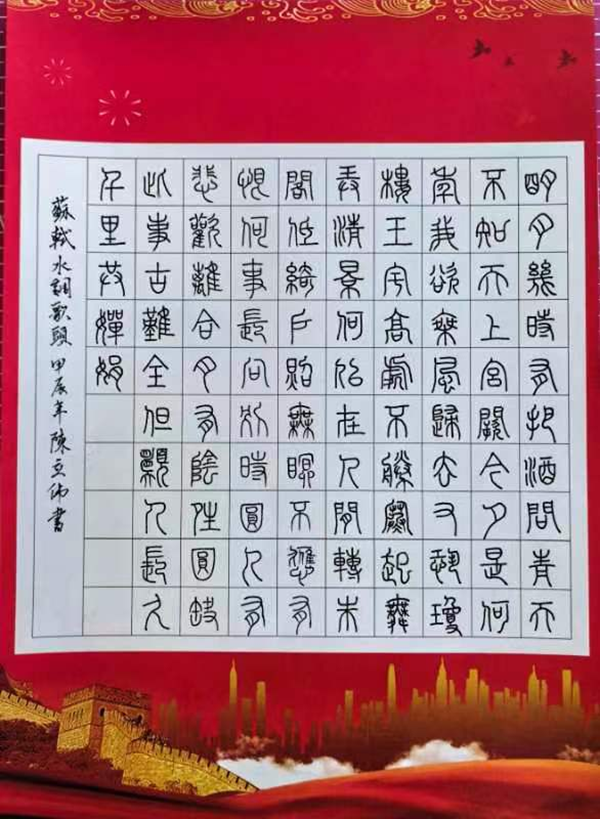 明月幾時有把酒問青天
不知天上宮闕今夕是何
年我欲乘風歸去又恐瓊
樓玉宇高處不勝寒起舞
弄清景何似在人間轉朱
閣低綺戶照無瞑不應有
恨何事長向別時圓人有
悲歡離合月有陰晴圓缺
此事古難全但願人長久
千里共嬋娟
蘇軾水調歌頭 甲辰年陳書